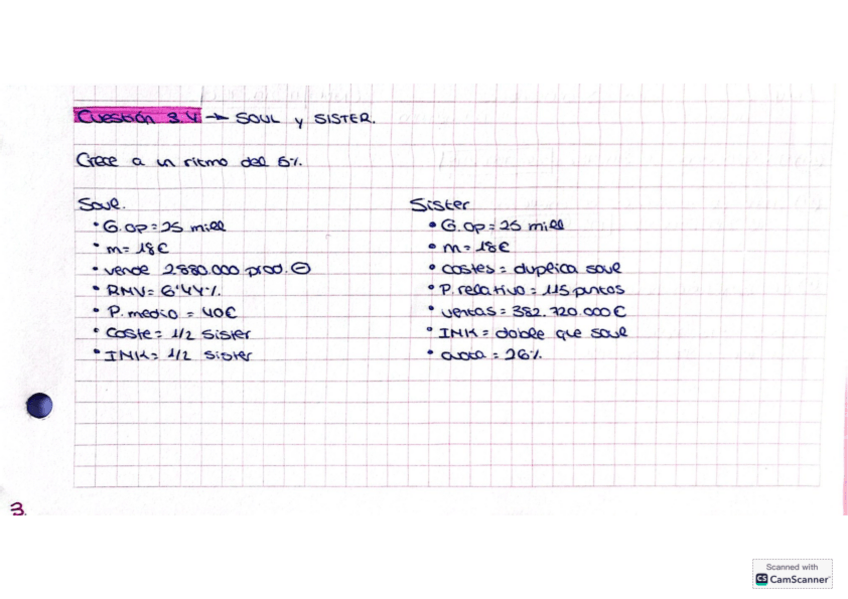 Cuestión 3.4 → SOUL y SISTER.
Crece a un ritmo del 5%.
Soul.
• G.op = 25 mill
• m = 18€
• vende 2.880.000 prod. ⊖
• RMV = 6'44%.
• P. medio = 40€
• Coste = 1/2 Sister
• INK = 1/2 Sister
Sister
• G.op = 25 mill
• m = 18€
• costes = duplica soul
• P. relativo = 115 puntos
• ventas = 382.720.000€
• INK = doble que soul
• cuota = 26%.
3.
Scanned with
CS CamScanner